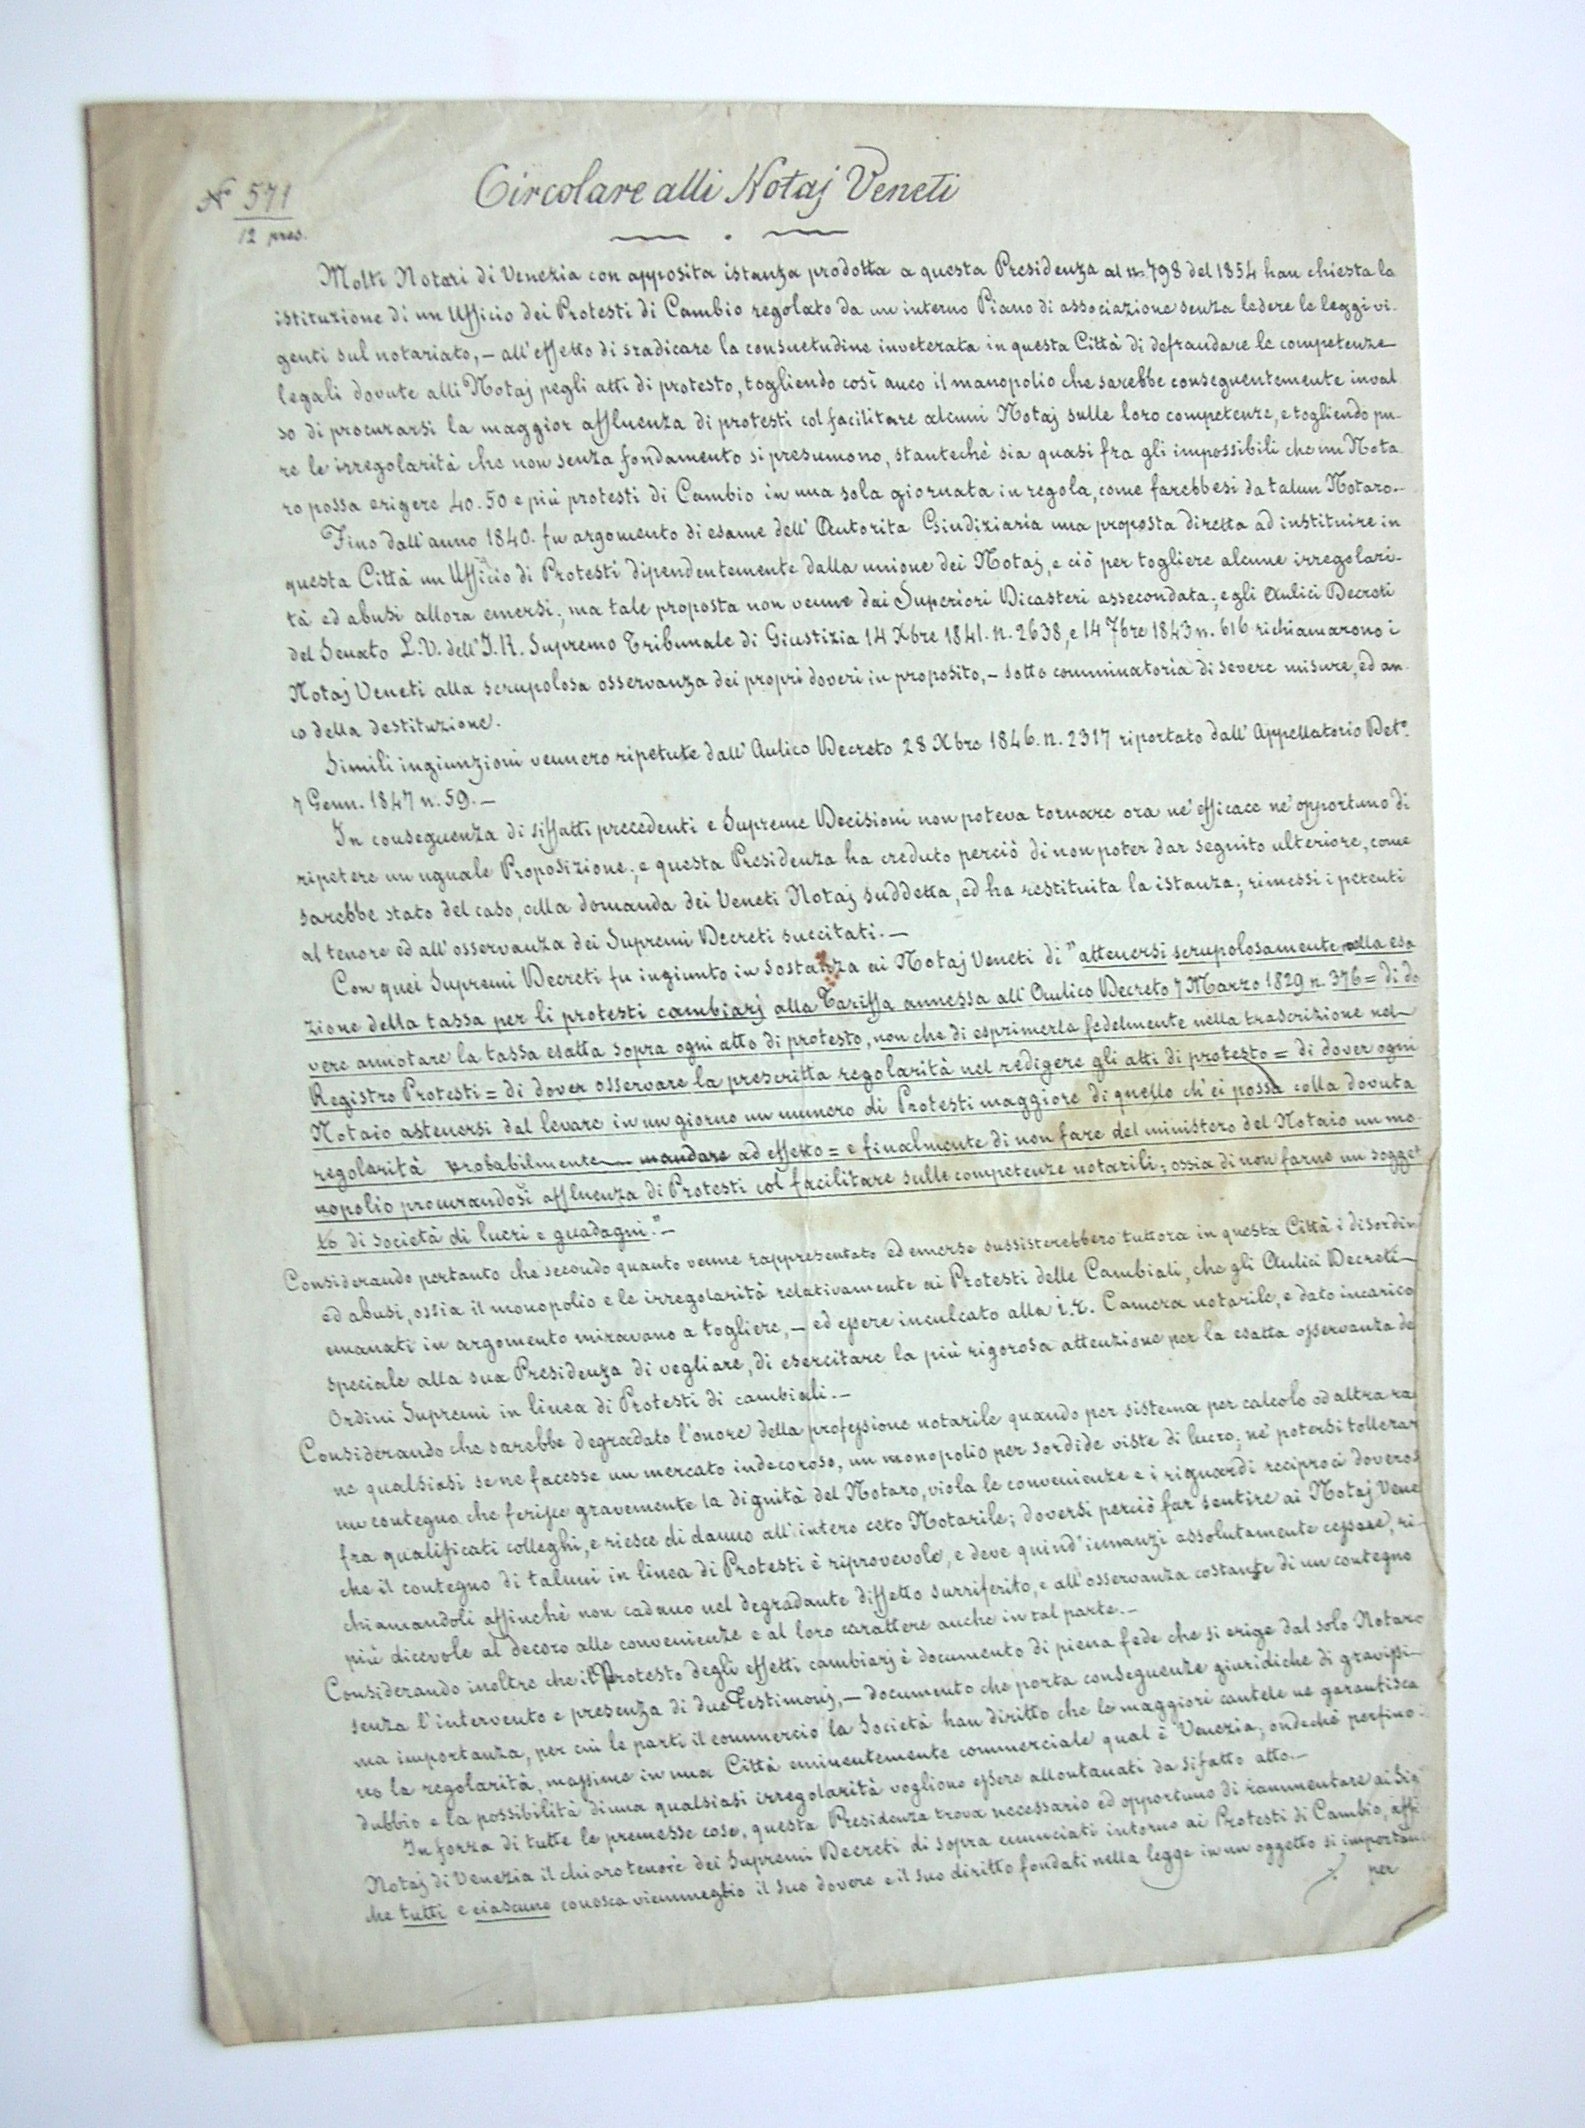 N 571
12 pres.
Circolare alli Notaj Veneti
Molti Notari di Venezia con apposita istanza prodotta a questa Presidenza al n. 798 del 1854 han chiesta la
istituzione di un Ufficio dei Protesti di Cambio regolato da un interno Piano di associazione senza ledere le leggi vi-
genti sul notariato, – all'effetto di sradicare la consuetudine inveterata in questa Città di defraudare le competenze
legali dovute alli Notaj pegli atti di protesto, togliendo così anco il manopolio che sarebbe conseguentemente inval
so di procurarsi la maggior affluenza di protesti col facilitare alcuni Notaj sulle loro competenze, e togliendo pu-
re le irregolarità che non senza fondamento si presumono, stantechè sia quasi fra gli impossibili che un Nota
ro possa erigere 40. 50 e più protesti di Cambio in una sola giornata in regola, come farebbesi da talun Notaro.-
Fino dall'anno 1840. fu argomento di esame dell'Autorita Giudiziaria una proposta diretta ad instituire in
questa Città un Ufficio di Protesti dipendentemente dalla unione dei Notaj, e ciò per togliere alcune irregolari-
tà ed abusi allora emersi; ma tale proposta non venne dai Superiori Dicasteri assecondata; e gli Aulici Decreti
del Senato L.V. dell'I.R. Supremo Tribunale di Giustizia 14 Xbre 1841. n. 2638, e 14 7bre 1843 n. 616 richiamarono i
Notaj Veneti alla scrupolosa osservanza dei proprj doveri in proposito, – sotto comminatoria di severe misure, ed an-
co della destituzione.
Simili ingiunzioni vennero ripetute dall'Aulico Decreto 28 Xbre 1846. n. 2317 riportato dall'Appellatorio Det.o
7 Genn. 1847 n. 59. –
In conseguenza di siffatti precedenti e Supreme Decisioni non poteva tornare ora nè efficace nè opportuno di
ripetere un uguale Proposizione; e questa Presidenza ha creduto perciò di non poter dar seguito ulteriore, come
sarebbe stato del caso, alla domanda dei Veneti Notaj suddetta, ed ha restituita la istanza; rimessi i petenti
al tenore ed all'osservanza dei Supremi Decreti succitati. –
Con quei Supremi Decreti fu ingiunto in sostanza ai Notaj Veneti di "attenersi scrupolosamente nella esa
zione della tassa per li protesti cambiarj alla Tariffa annessa all'Aulico Decreto 7 Marzo 1829 n. 376 = di do
vere annotare la tassa esatta sopra ogni atto di protesto, non che di esprimerla fedelmente nella trascrizione nel
Registro Protesti = di dover osservare la prescritta regolarità nel redigere gli atti di protesto = di dover ogni
Notaio astenersi dal levare in un giorno un numero di Protesti maggiore di quello ch'ei possa colla dovuta
regolarità probabilmente mandare ad effetto = e finalmente di non fare del ministero del Notaio un mo-
nopolio procurandosi affluenza di Protesti col facilitare sulle competenze notarili; ossia di non farne un sogget
to di società di lucri e guadagni." –
Considerando pertanto che secondo quanto venne rappresentato ed emerse sussisterebbero tuttora in questa Città i disordini
ed abusi, ossia il monopolio e le irregolarità relativamente ai Protesti delle Cambiali, che gli Aulici Decreti
emanati in argomento miravano a togliere, – ed essere inculcato alla i.r. Camera notarile, e dato incarico
speciale alla sua Presidenza di vegliare, di esercitare la più rigorosa attenzione per la esatta osservanza de
Ordini Supremi in linea di Protesti di cambiali. –
Considerando che sarebbe degradato l'onore della professione notarile quando per sistema per calcolo od altra ra
ne qualsiasi se ne facesse un mercato indecoroso, un monopolio per sordide viste di lucro; nè potersi tollerar
un contegno che ferisce gravemente la dignità del Notaro, viola le convenienze e i riguardi reciproci doveros
fra qualificati colleghi, e riesce di danno all'intero ceto Notarile; doversi perciò far sentire ai Notaj Vene
che il contegno di taluni in linea di Protesti è riprovevole, e deve quind'innanzi assolutamente cessare, ri-
chiamandoli affinchè non cadano nel degradante diffetto surriferito, e all'osservanza costante di un contegno
più dicevole al decoro alle convenienze e al loro carattere anche in tal parte. –
Considerando inoltre che il Protesto degli effetti cambiarj è documento di piena fede che si erige dal solo Notaro
senza l'intervento e presenza di due Testimonj, – documento che porta conseguenze giuridiche di gravissi-
ma importanza, per cui le parti il commercio la Società han diritto che le maggiori cautele ne garantisca
no la regolarità, massime in una Città eminentemente commerciale qual è Venezia; ondechè perfino
dubbio e la possibilità di una qualsiasi irregolarità vogliono essere allontanati da sifatto atto. –
In forza di tutte le premesse cose, questa Presidenza trova necessario ed opportuno di rammentare ai Sig
Notaj di Venezia il chiaro tenore dei Supremi Decreti di sopra enunciati intorno ai Protesti di Cambio, affi
che tutti e ciascuno conosca viemmeglio il suo dovere e il suo diritto fondati nella legge in un oggetto si important
per